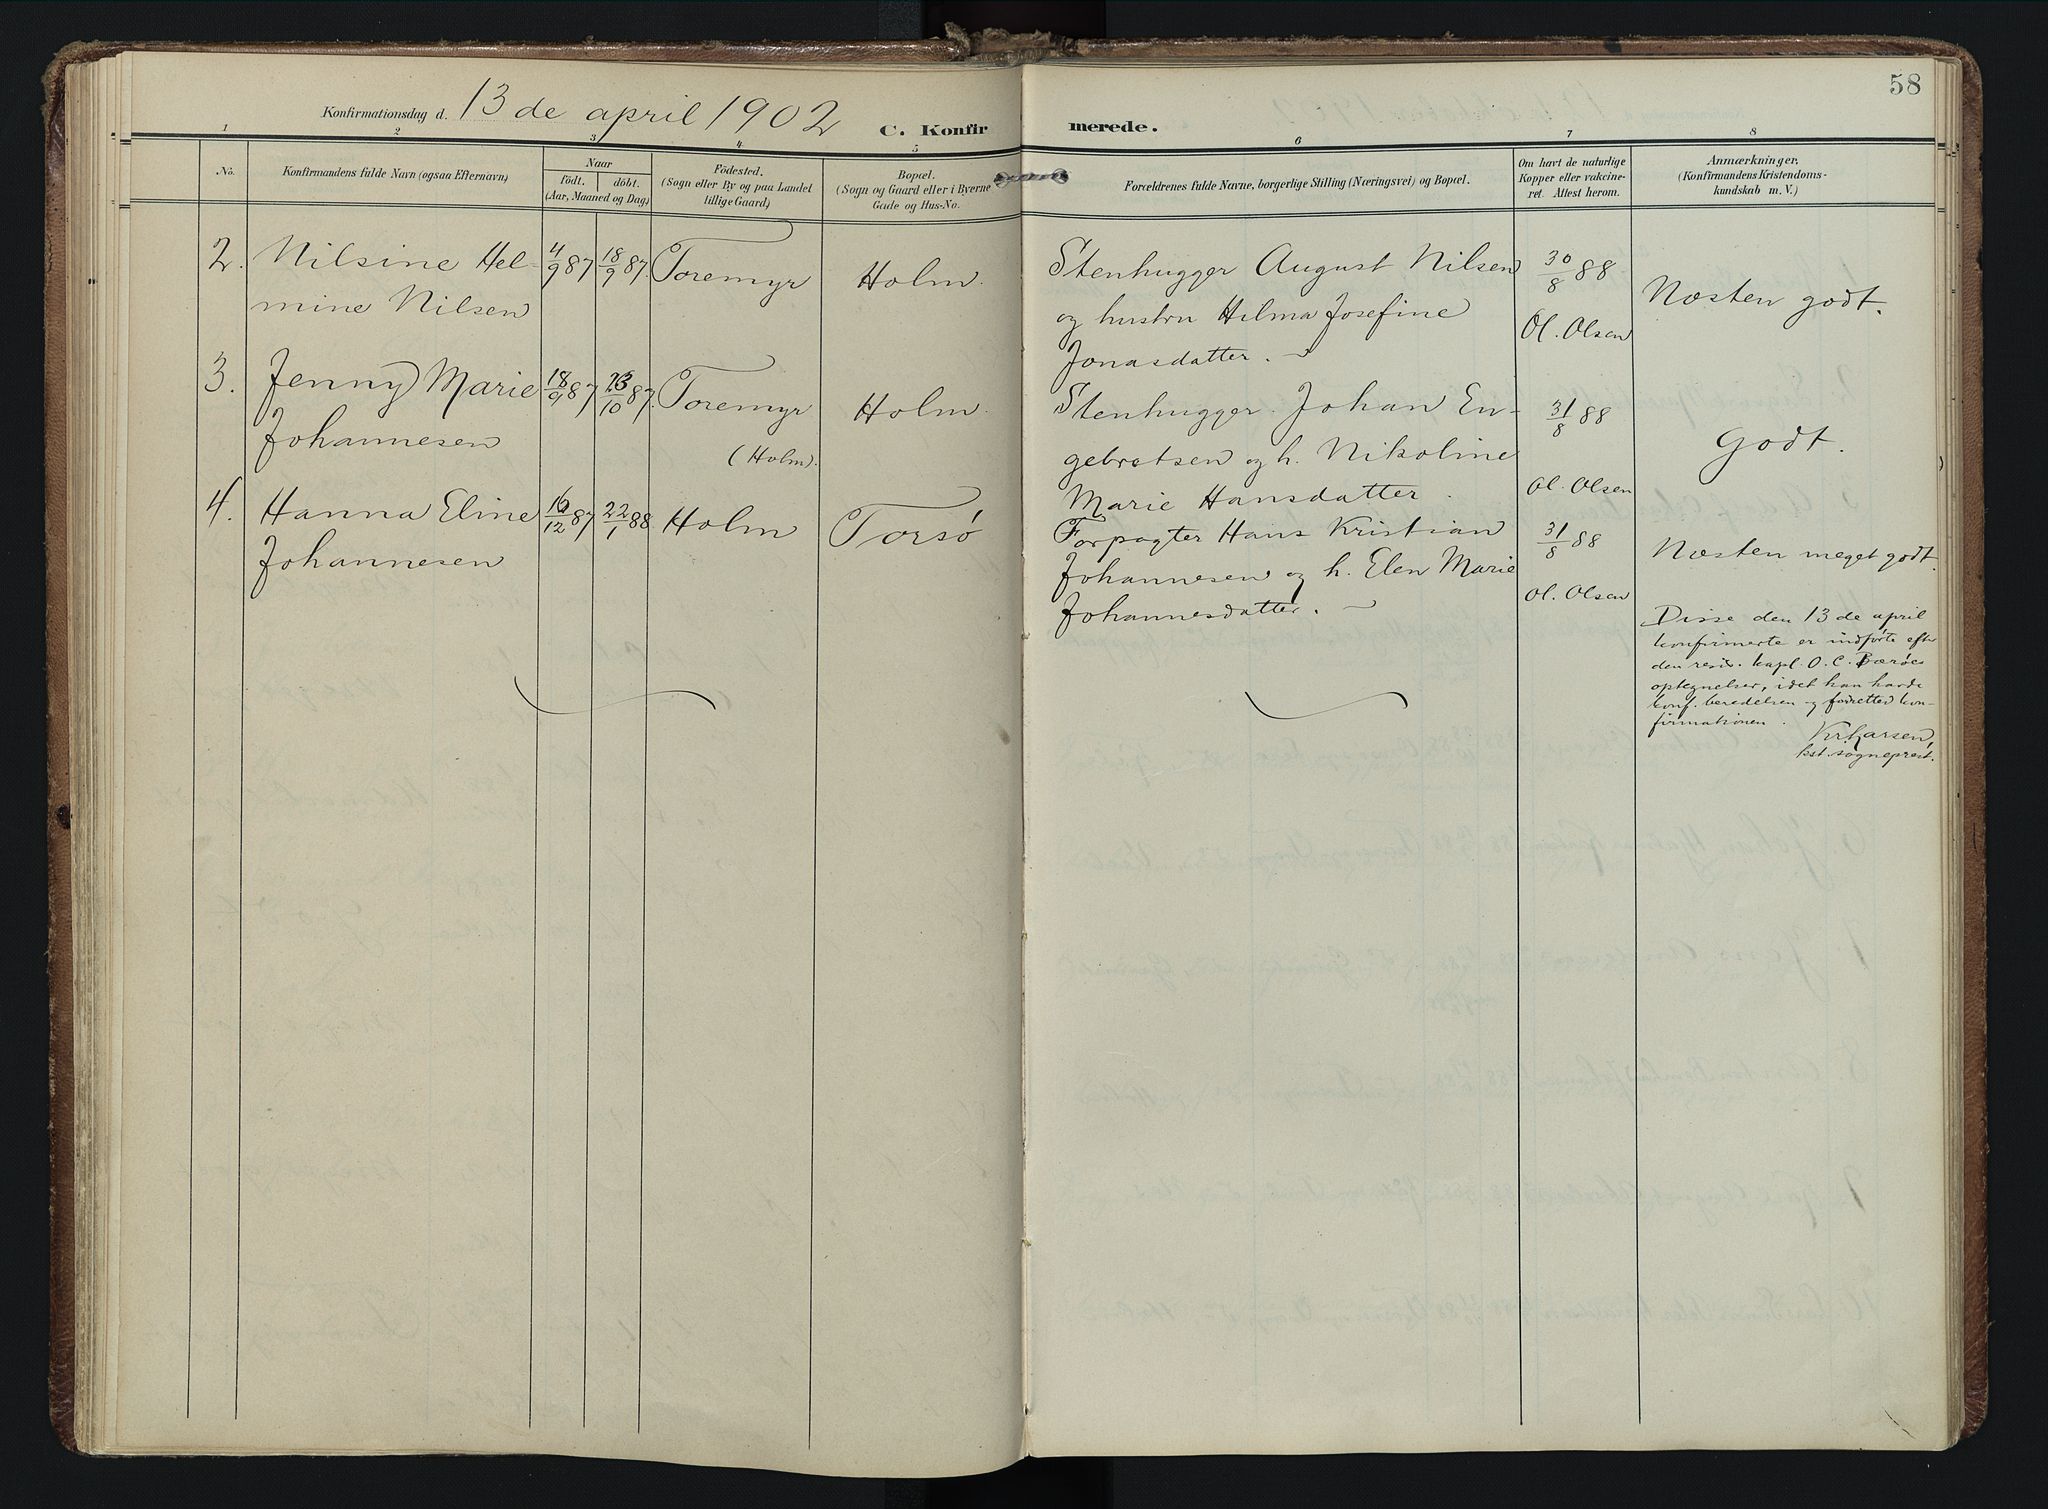 58
Konfirmationsdag d. 13 de april 1902
C. Konfirmerede.
1 2 3 4 5 6 7 8
No.
Konfirmandens fulde Navn (ogsaa Efternavn)
Naar
födt. döbt.
(Aar, Maaned og Dag)
Födested.
(Sogn eller By og paa Landet
tillige Gaard)
Bopæl.
(Sogn og Gaard eller i Byerne
Gade og Hus-No.
Forældrenes fulde Navne, borgerlige Stilling (Næringsvei) og Bopæl.
Om havt de naturlige
Kopper eller vakcine-
ret. Attest herom.
Anmærkninger.
(Konfirmandens Kristendoms-
kundskab m. V.)
2. Nilsine Hel-
mine Nilsen
4/9 87 18/9 87. Toremyr Holm.
Stenhugger August Nilsen
og hustru Hilma Josefine
Jonasdatter.
30/8 88
Ol. Olsen
Næsten godt.
3. Jenny Marie
Johannesen
18/9 87 23/10 87. Toremyr
(Holm).
Holm.
Stenhugger Johan En-
gebretsen og h. Nikoline
Marie Hansdatter.
31/8 88
Ol. Olsen
Godt.
4. Hanna Eline
Johannesen
16/12 87 22/1 88 Holm Torsö
Forpagter Hans Kristian
Johannesen og h. Elen Marie
Johannesdatter.
31/8 88
Ol. Olsen
Næsten meget godt.
Disse den 13 de april
konfirmerte er indförte efter
den resid. kapl. O. C. Bæröes
optegnelser, idet han havde
konf. beredelsen og forretted kon-
firmationen.
Kr. Larsen,
kst. sogneprest.